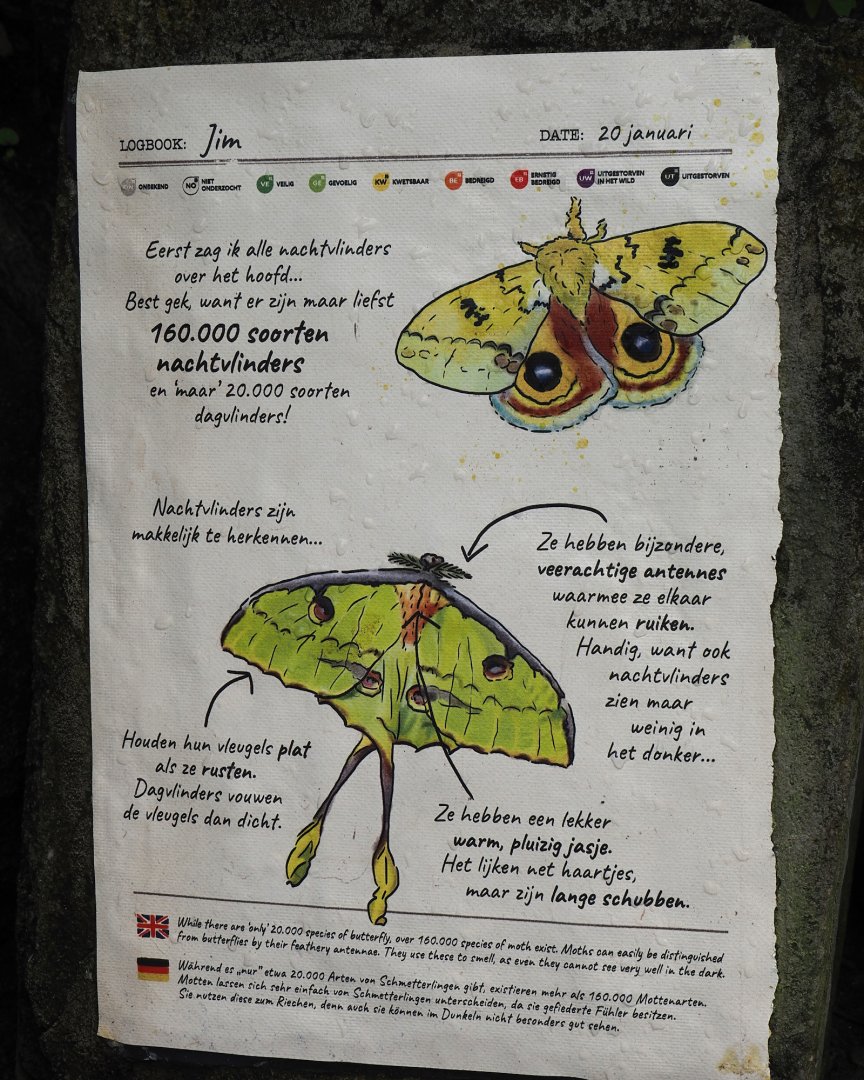 LOGBOOK: Jim
DATE: 20 januari
NO NIET ONDERZOCHT
ONBEKEND
VE VEILIG
GE GEVOELIG
KW KWETSBAAR
BE BEDREIGD
EB ERNSTIG BEDREIGD
UW UITGESTORVEN IN HET WILD
UT UITGESTORVEN
Eerst zag ik alle nachtvlinders
over het hoofd...
Best gek, want er zijn maar liefst
160.000 soorten
nachtvlinders
en 'maar' 20.000 soorten
dagvlinders!
Nachtvlinders zijn
makkelijk te herkennen...
Ze hebben bijzondere,
veerachtige antennes
waarmee ze elkaar
kunnen ruiken.
Handig, want ook
nachtvlinders
zien maar
weinig in
het donker...
Houden hun vleugels plat
als ze rusten.
Dagvlinders vouwen
de vleugels dan dicht.
Ze hebben een lekker
warm, pluizig jasje.
Het lijken net haartjes,
maar zijn lange schubben.
While there are 'only' 20.000 species of butterfly, over 160.000 species of moth exist. Moths can easily be distinguished
from butterflies by their feathery antennae. They use these to smell, as even they cannot see very well in the dark.
Während es „nur" etwa 20.000 Arten von Schmetterlingen gibt, existieren mehr als 160.000 Mottenarten.
Motten lassen sich sehr einfach von Schmetterlingen unterscheiden, da sie gefiederte Fühler besitzen.
Sie nutzen diese zum Riechen, denn auch sie können im Dunkeln nicht besonders gut sehen.